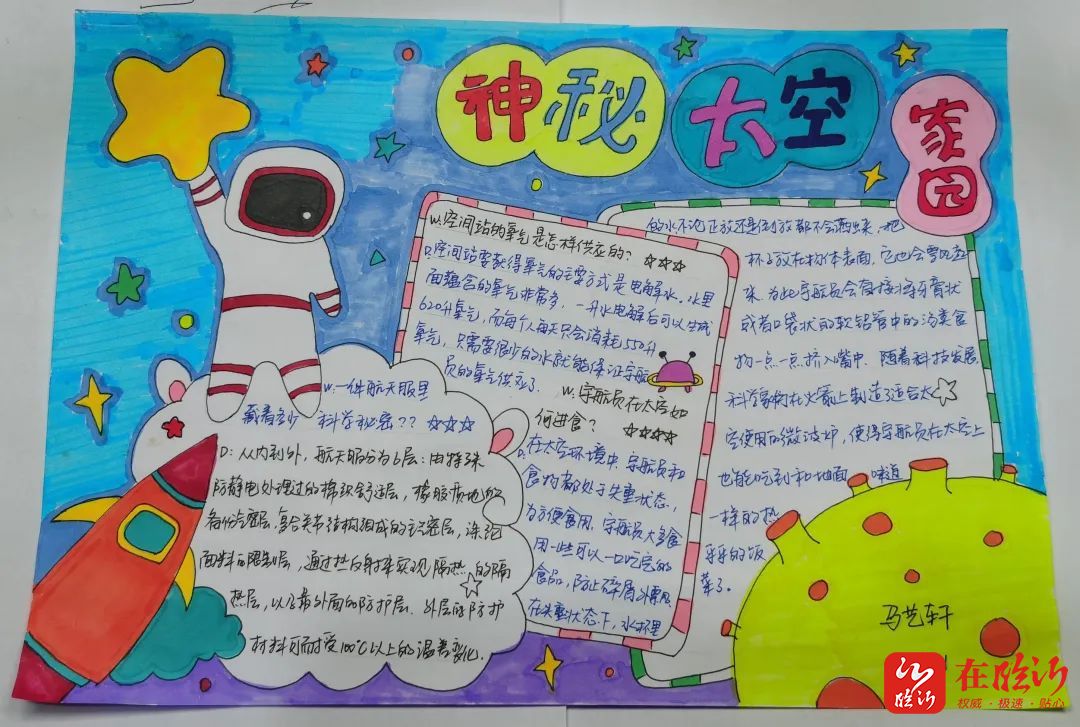 神秘太空家园
W. 空间站的氧气是怎样供应的？
D. 空间站要获得氧气的主要方式是电解水。水里
面蕴含的氧气非常多，一升水电解后可以生成
620升氧气，而每个人每天只会消耗550升
氧气，只需要很少的水就能保证宇航
员的氧气供应了。
W. 宇航员在太空如
何进食？
D. 在太空环境中，宇航员和
食物都处于失重状态，
为方便食用，宇航员大多食
用一些可以一口吃完的
食品，防止碎屑外
在失重状态下，水杯里
的水不论正放还是倒放都不会洒出来，把
杯子放在物体表面，它也会
珠，为此宇航员会直接将牙膏状
或者口袋状的软铝管中的消美食
物一点一点挤入嘴中，随着科技发展
科学家们在火箭上制造了适合太
空使用的微波炉，使得宇航员在太空上
也能吃到和地面 味道
一样的热
乎乎的饭
菜了。
W. 一件航天服里
藏着多少 科学秘密？？
D：从内到外，航天服分为6层：由特殊
防静电处理过的棉织舒适层，橡胶质地的
备份气密层，复合关节结构组成的 密层，涤纶
面料的限制层，通过热反射来实现隔热的隔
热层，以及最外面的防护层。外层的防护
材料可耐受100℃以上的温差变化。
马艺轩
临沂
在临沂
权威·极速·贴心